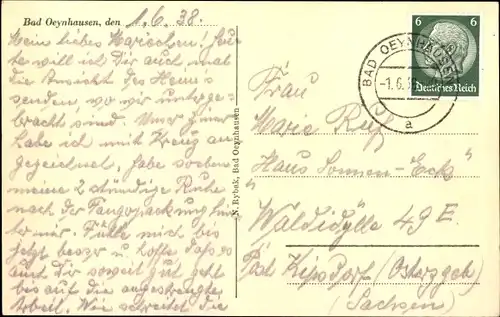 Bad Oeynhausen, den 1.6.38.
Mein liebes Mariechen! Heu-
te will ich Dir auch mal
die Ansicht des Heims
senden, wo wir unterge-
bracht sind. Unser Zimmer
habe ich mit Kreuz an-
gezeichnet, habe soeben
meine 2 stündige Ruhe
nach der Fangopackung hin-
ter mir. Fühle mich bis
jetzt besser u. hoffe daß es
auch Dir soweit gut geht
bis auf die angestrengte
Arbeit. Wie schreitet die
N. Rybak, Bad Oeynhausen
6 6
Deutsches Reich
BAD OEYNHAUSEN
-1.6.
a
Frau
Marie
"Haus Sonnen-Eck"
Waldidylle 49 E.
Post Kipsdorf (Osterzgeb.)
(Sachsen)